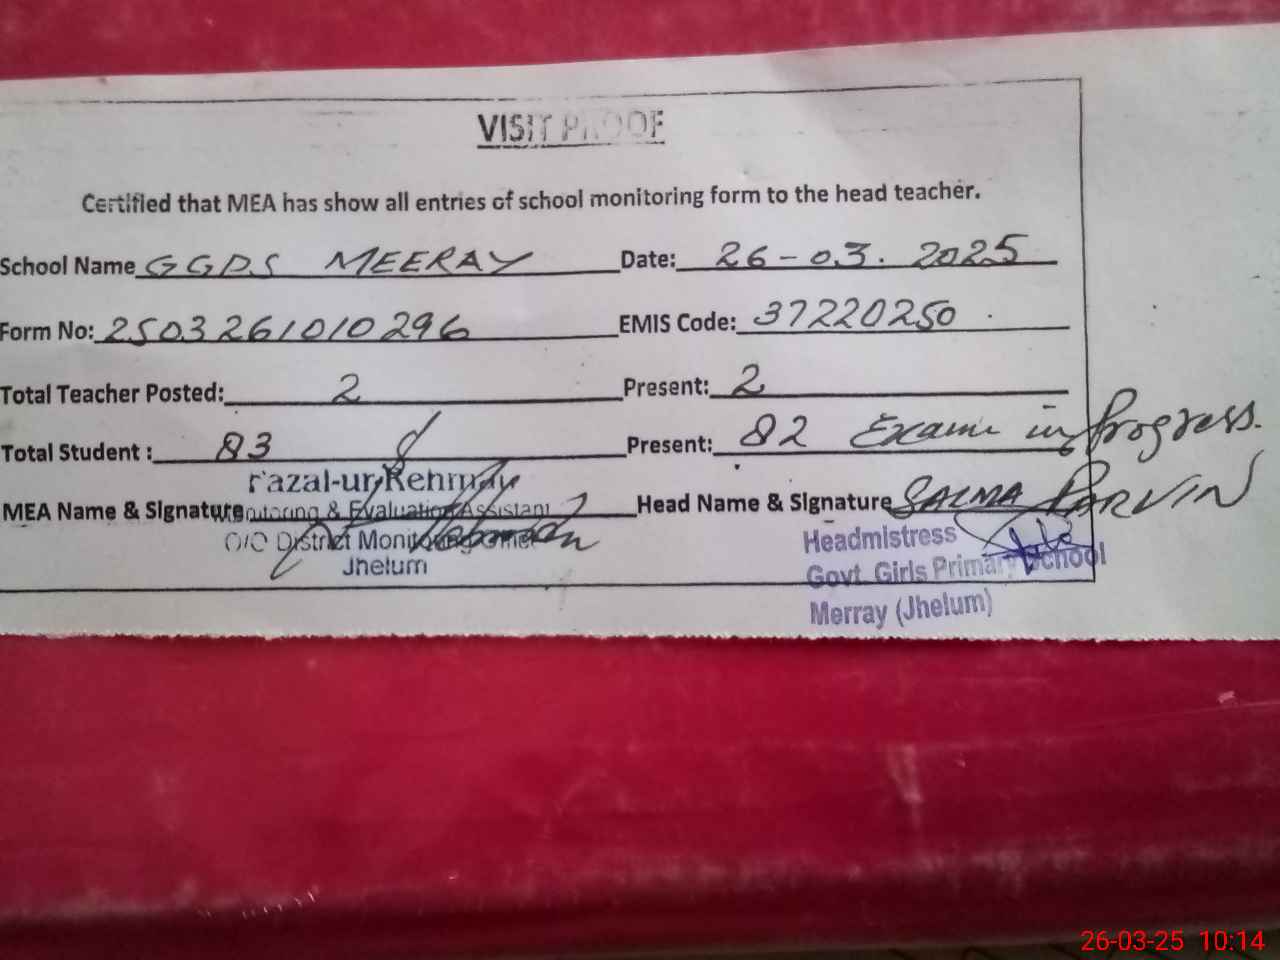 VISIT PROOF
Certified that MEA has show all entries of school monitoring form to the head teacher.
School Name GGPS MEERAY Date: 26-03.2025
Form No: 2503261010296 EMIS Code: 37220250
Total Teacher Posted: 2 Present: 2
Total Student : 83 Present: 82 Exam in Progress.
Fazal-ur-Rehman
MEA Name & Signature Monitoring & Evaluation Assistant Head Name & Signature SALMA PARVIN
O/O District Monitoring Jhelum
Headmistress
Govt. Girls Primary School
Merray (Jhelum)
26-03-25 10:14